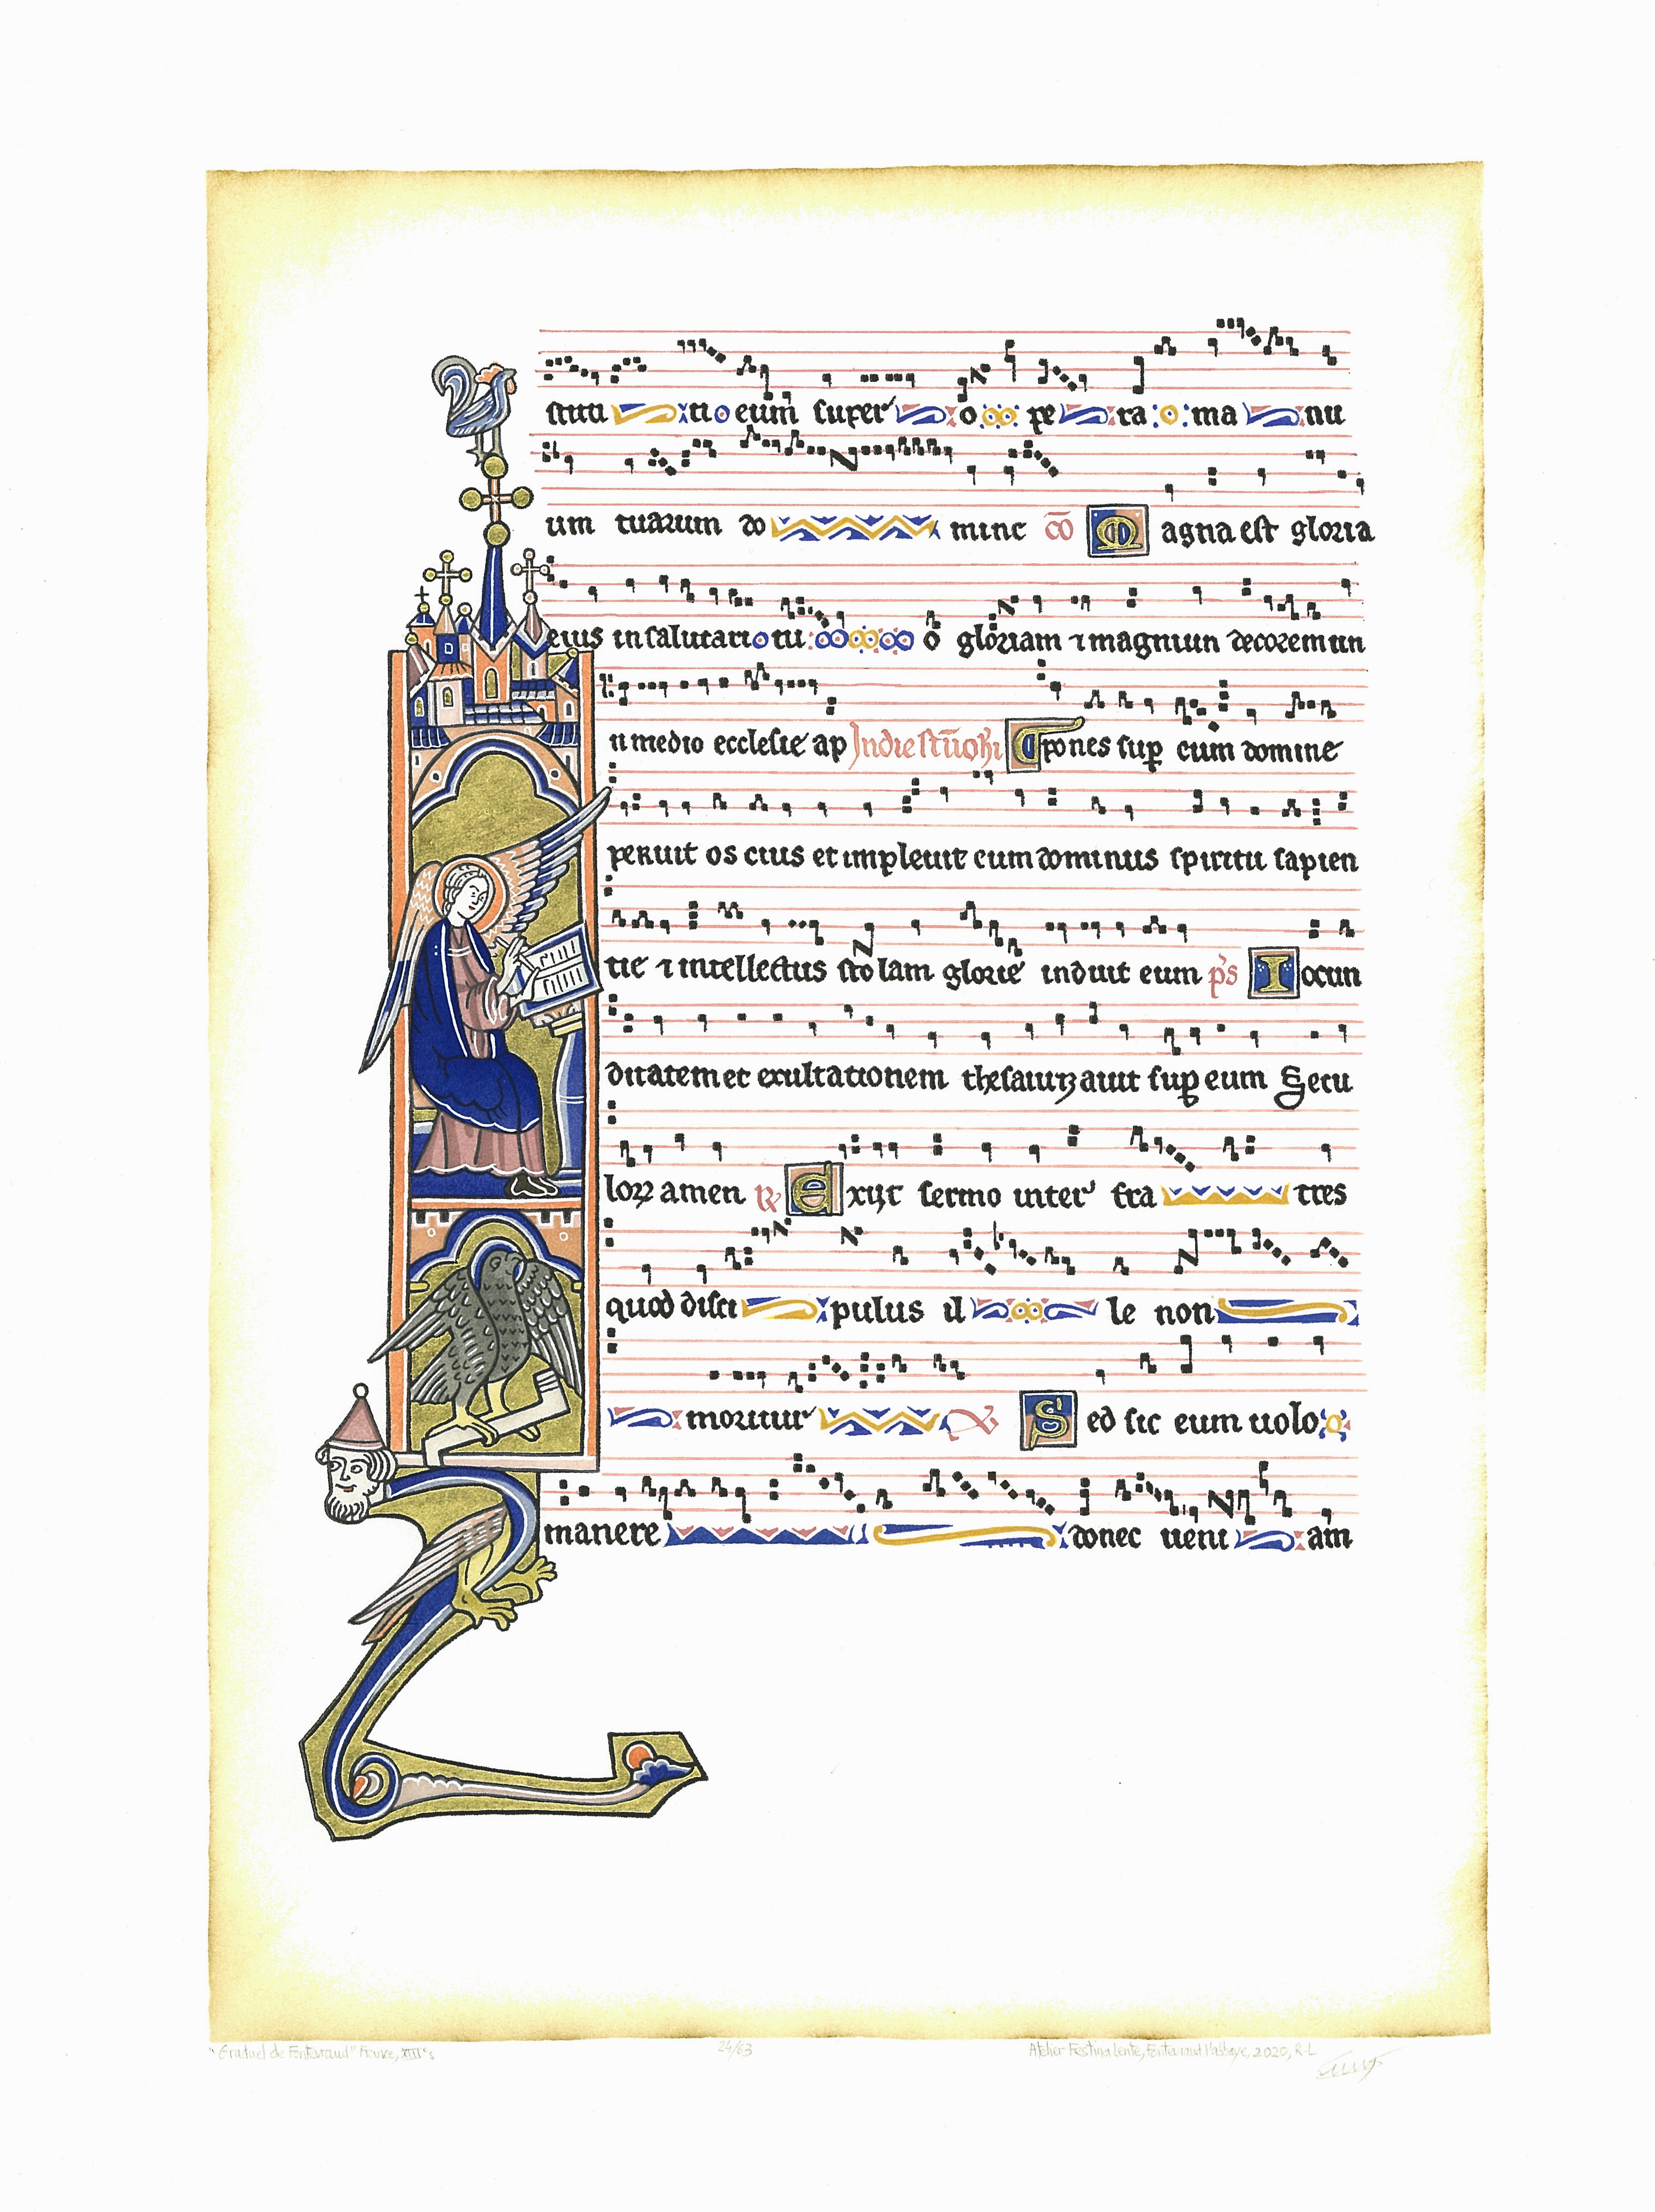 stitu isti eum super o pe ra ma nu
um tuarum do mine cō Magna est gloria
eius in salutari tu o gloriam ⁊ magnum decorem im
n medio ecclesie ap In die sti iohi Pones sup eum domine
peruit os eius et impleuit eum dominus spiritu sapien
tie ⁊ intellectus stolam glorie induit eum ps Iocun
ditatem et exultationem thesaurizauit sup eum Secu
lorum amen ℟ Exijt sermo inter fra tres
quod disci pulus il le non
moritur ℣ Sed sic eum uolo
manere donec ueni am
"Graduel de Fontevraud" France, XIII°s
24/63
Atelier Festina Lente, Fontevraud l'abbaye, 2020, R-L